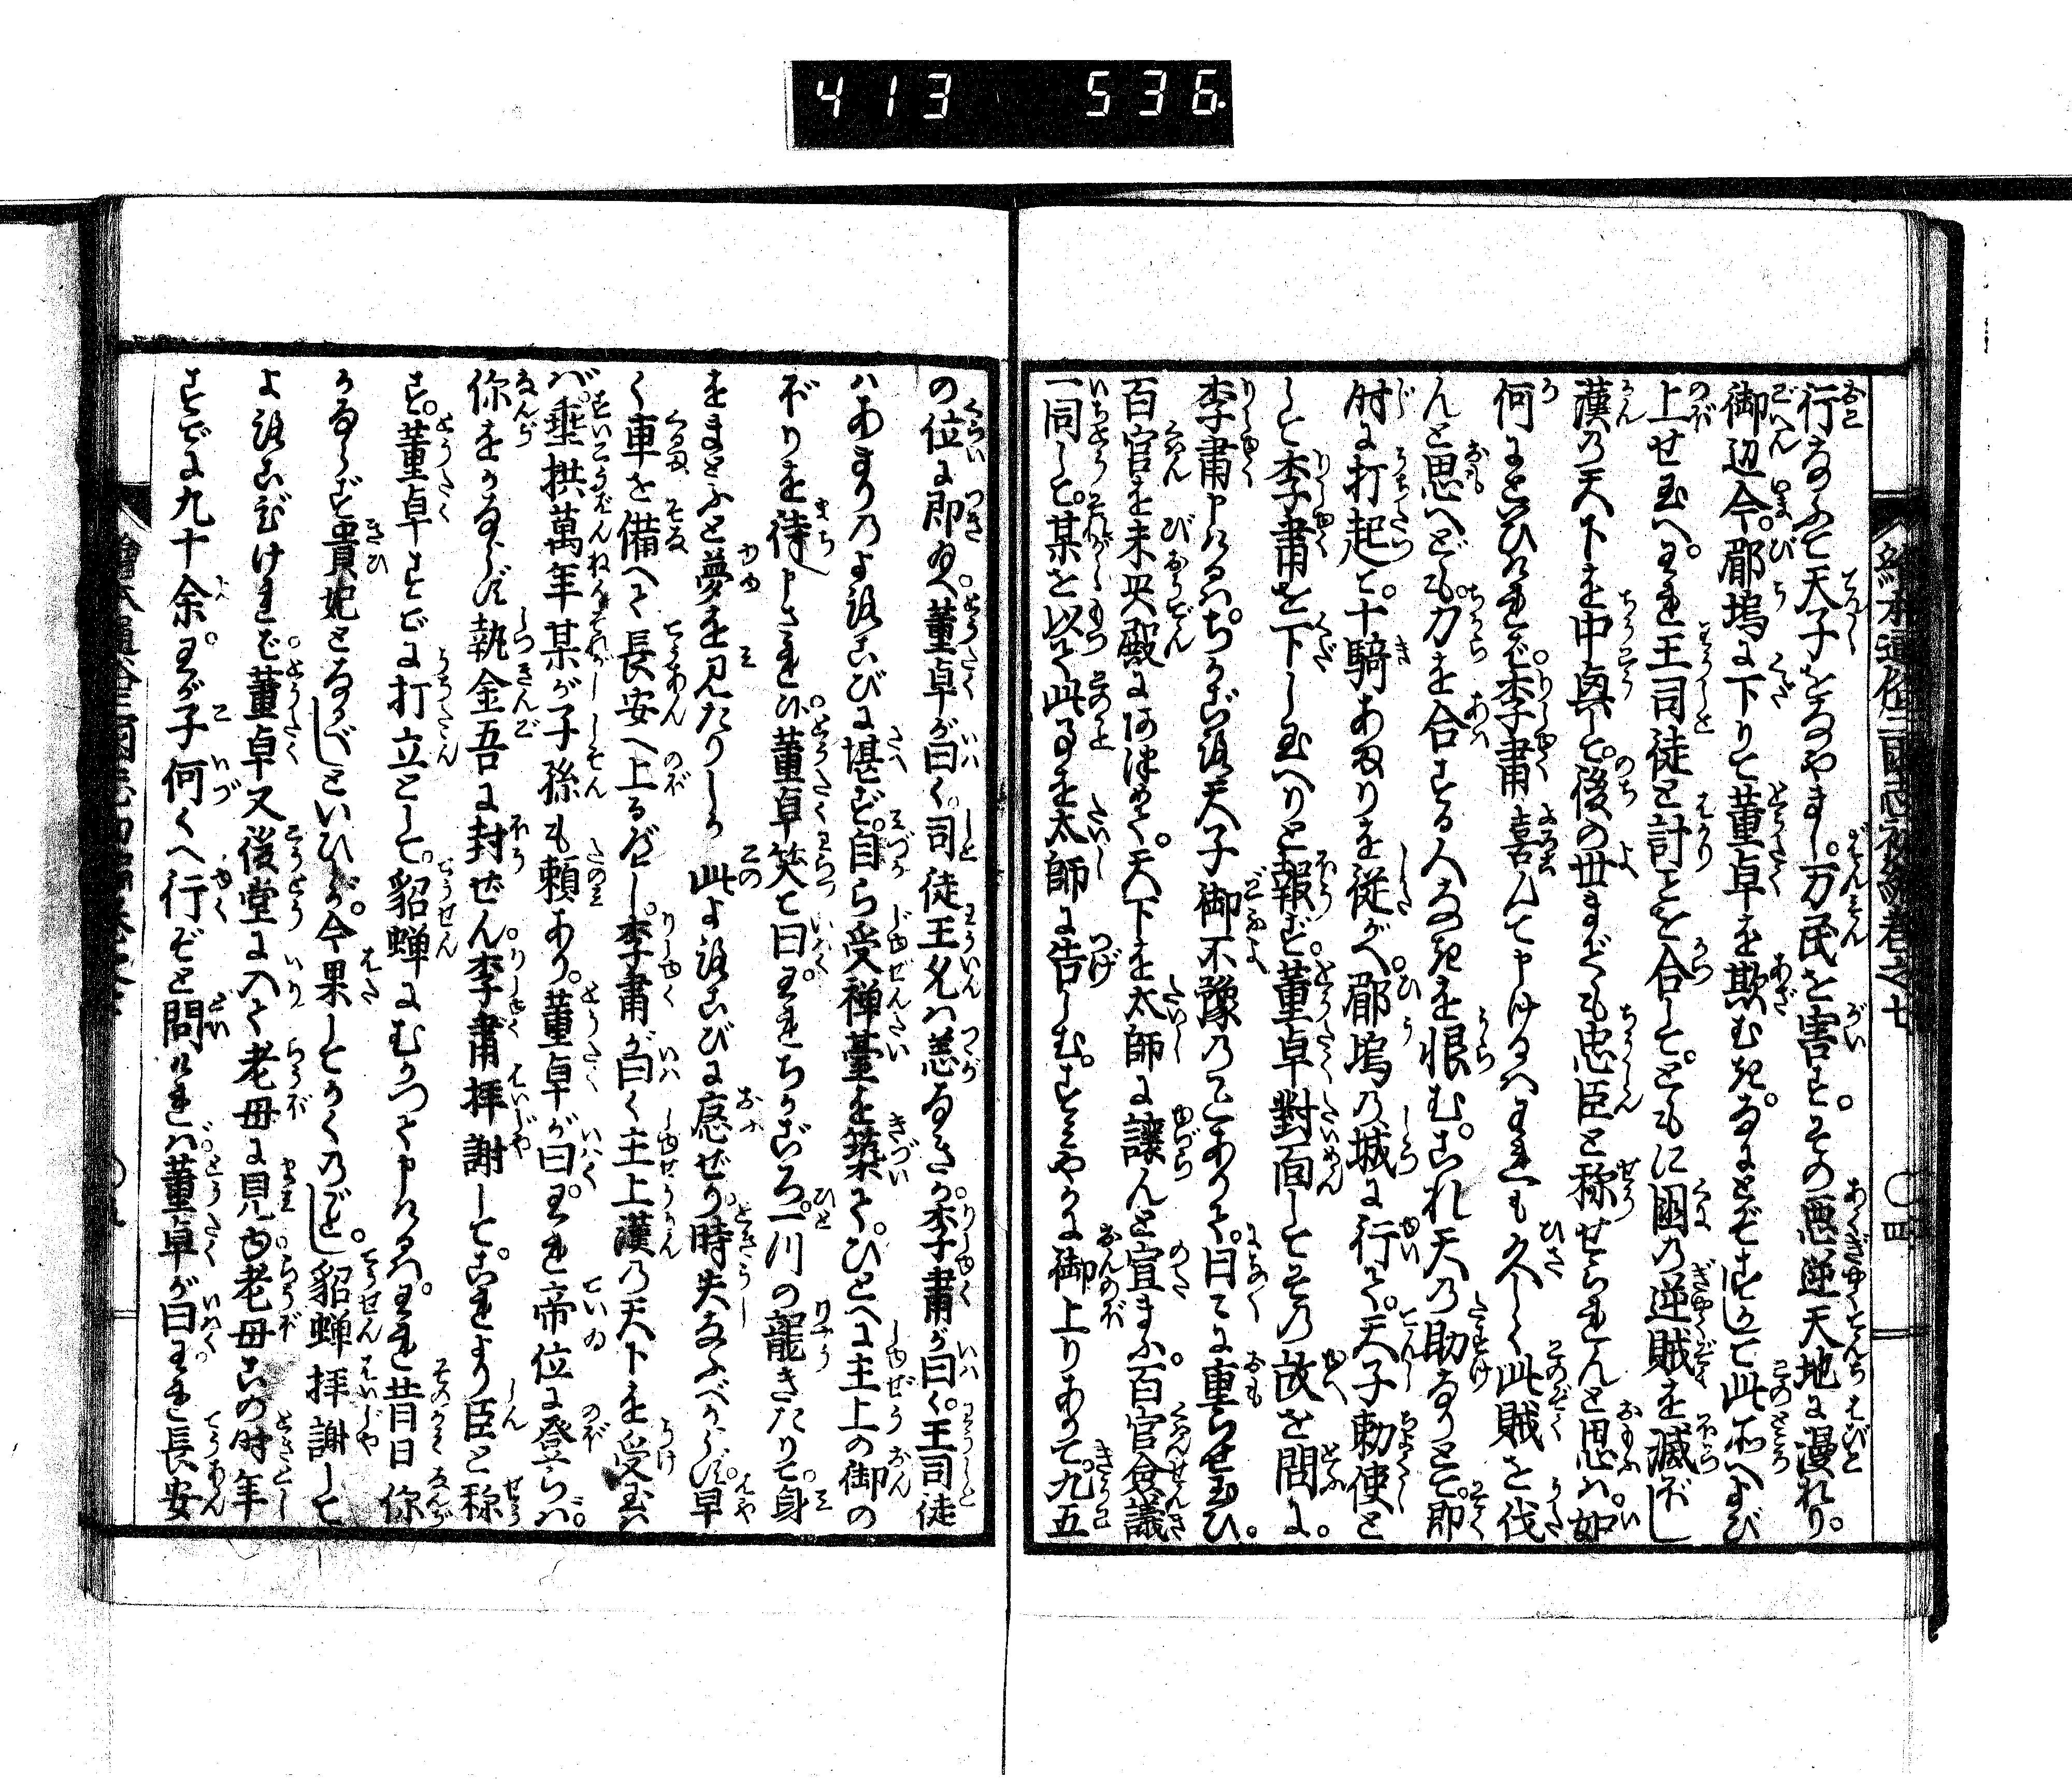 413 536
繪本通俗三國志初編卷之七 〇四
行なふて天子をなやまし。万民を害す。その悪逆天地に漫れり。
御辺今。郿塢に下りて董卓を欺むき。なにとぞすかして此所へよび
上せ玉へ。われ王司徒と計ごとを合して。ともに国の逆賊を滅ぼし
漢乃天下を中興して。後の世までも忠臣と称せられんと思ふは。如
何にといひければ。李肅喜んで申けるは。われも久しく此賊を伐
んと思へども。力を合する人なきを恨む。これ天乃助なりとて。即
时に打起て。十騎あまりを従がへ。郿塢乃城に行て。天子勅使と
して李肅を下し玉へりと報ず。董卓對面してその故を問に。
李肅申けるは。ちかごろ天子御不豫の事ありて。日々に重らせ玉ひ。
百官を未央殿にあつめて。天下を太師に讓んと宣まふ。百官僉議
一同して。某を以て此事を太師に告しむ。すみやかに御上りありて。九五
の位に即玉へ。董卓が曰く。司徒王允は恙なきか。李肅が曰く。王司徒
はあまりのよろこびに堪ず。自ら受禅臺を築て。ひとへに主上の御の
ぼりを待申されぬ。董卓笑て曰。われちかごろ。一川の竜きたりて。身
をまとふと夢を見たりしが此よろこびに應ぜり。時失なふべからず。早
く車を備へて長安へ上るべし。李肅が曰く主上漢乃天下を受玉は
ば。垂拱萬年某が子孫も頼あり。董卓が曰。われ帝位に登らば。
你をかならず執金吾に封ぜん。李肅拝謝して。これより臣と称
す。董卓すでに打立として。貂蝉にむかつて申けるは。われ昔日你
かならず貴妃となすべしといひしが。今果してかくのごとし。貂蝉拝謝して
よろこびければ。董卓又後堂に入て老母に見ゆ。老母この时年
すでに九十余。わが子何くへ行ぞと問ければ。董卓が曰。われ長安